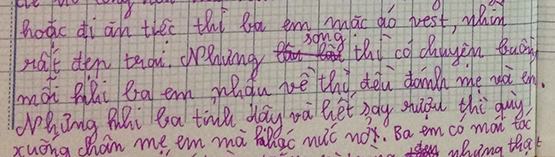 hoặc đi ăn tiệc thì ba em mặc áo vest, nhìn
rất đẹp trai. Nhưng song thì có chuyện buồn
mỗi khi ba em nhậu về thì đều đánh mẹ và em.
Những khi ba tỉnh dậy và hết say rượu thì quỳ
xuống chân mẹ em mà khóc nức nở. Ba em có mái tóc
nhưng thật